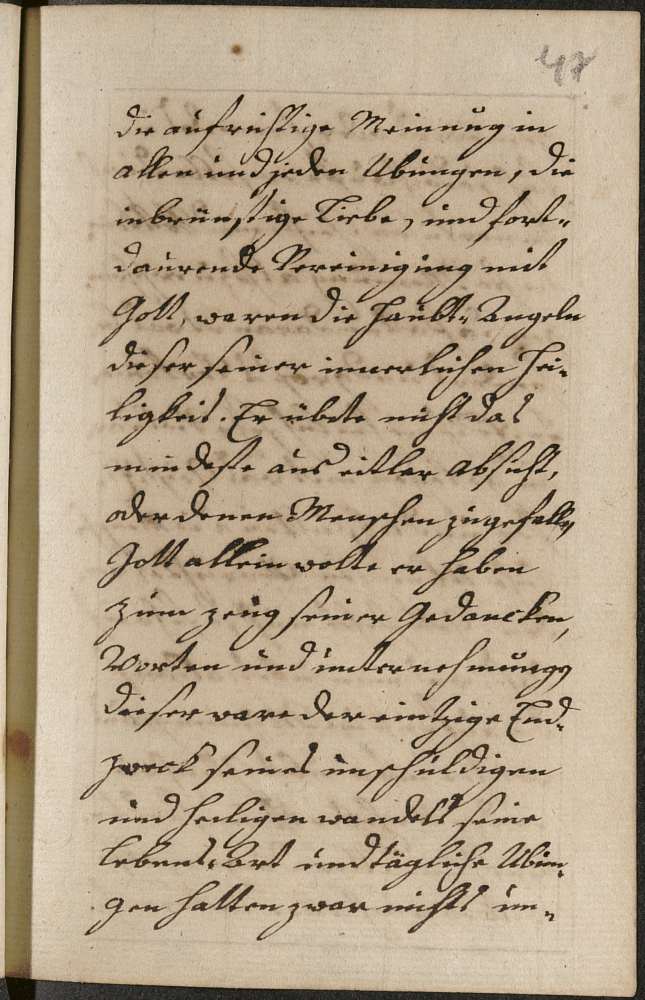 47
die aufrichtige Meinung in
allen und jeden Übungen, die
inbrünstige Liebe, und fort-
daurende Vereinigung mit
Gott, waren die Haubt-Angeln
dieser seiner innerlichen Hei-
ligkeit. Er übete nicht das
mindeste aus eitler absicht,
oder denen Menschen zu gefallen
Gott allein wolte er haben
zum zeug seiner Gedancken,
Worten und unternehmungen
dieser ware der eintzige End-
zweck seines unschuldigen
und heiligen wandels seine
lebens-Art und tägliche Übun-
gen hatten zwar nichts un-